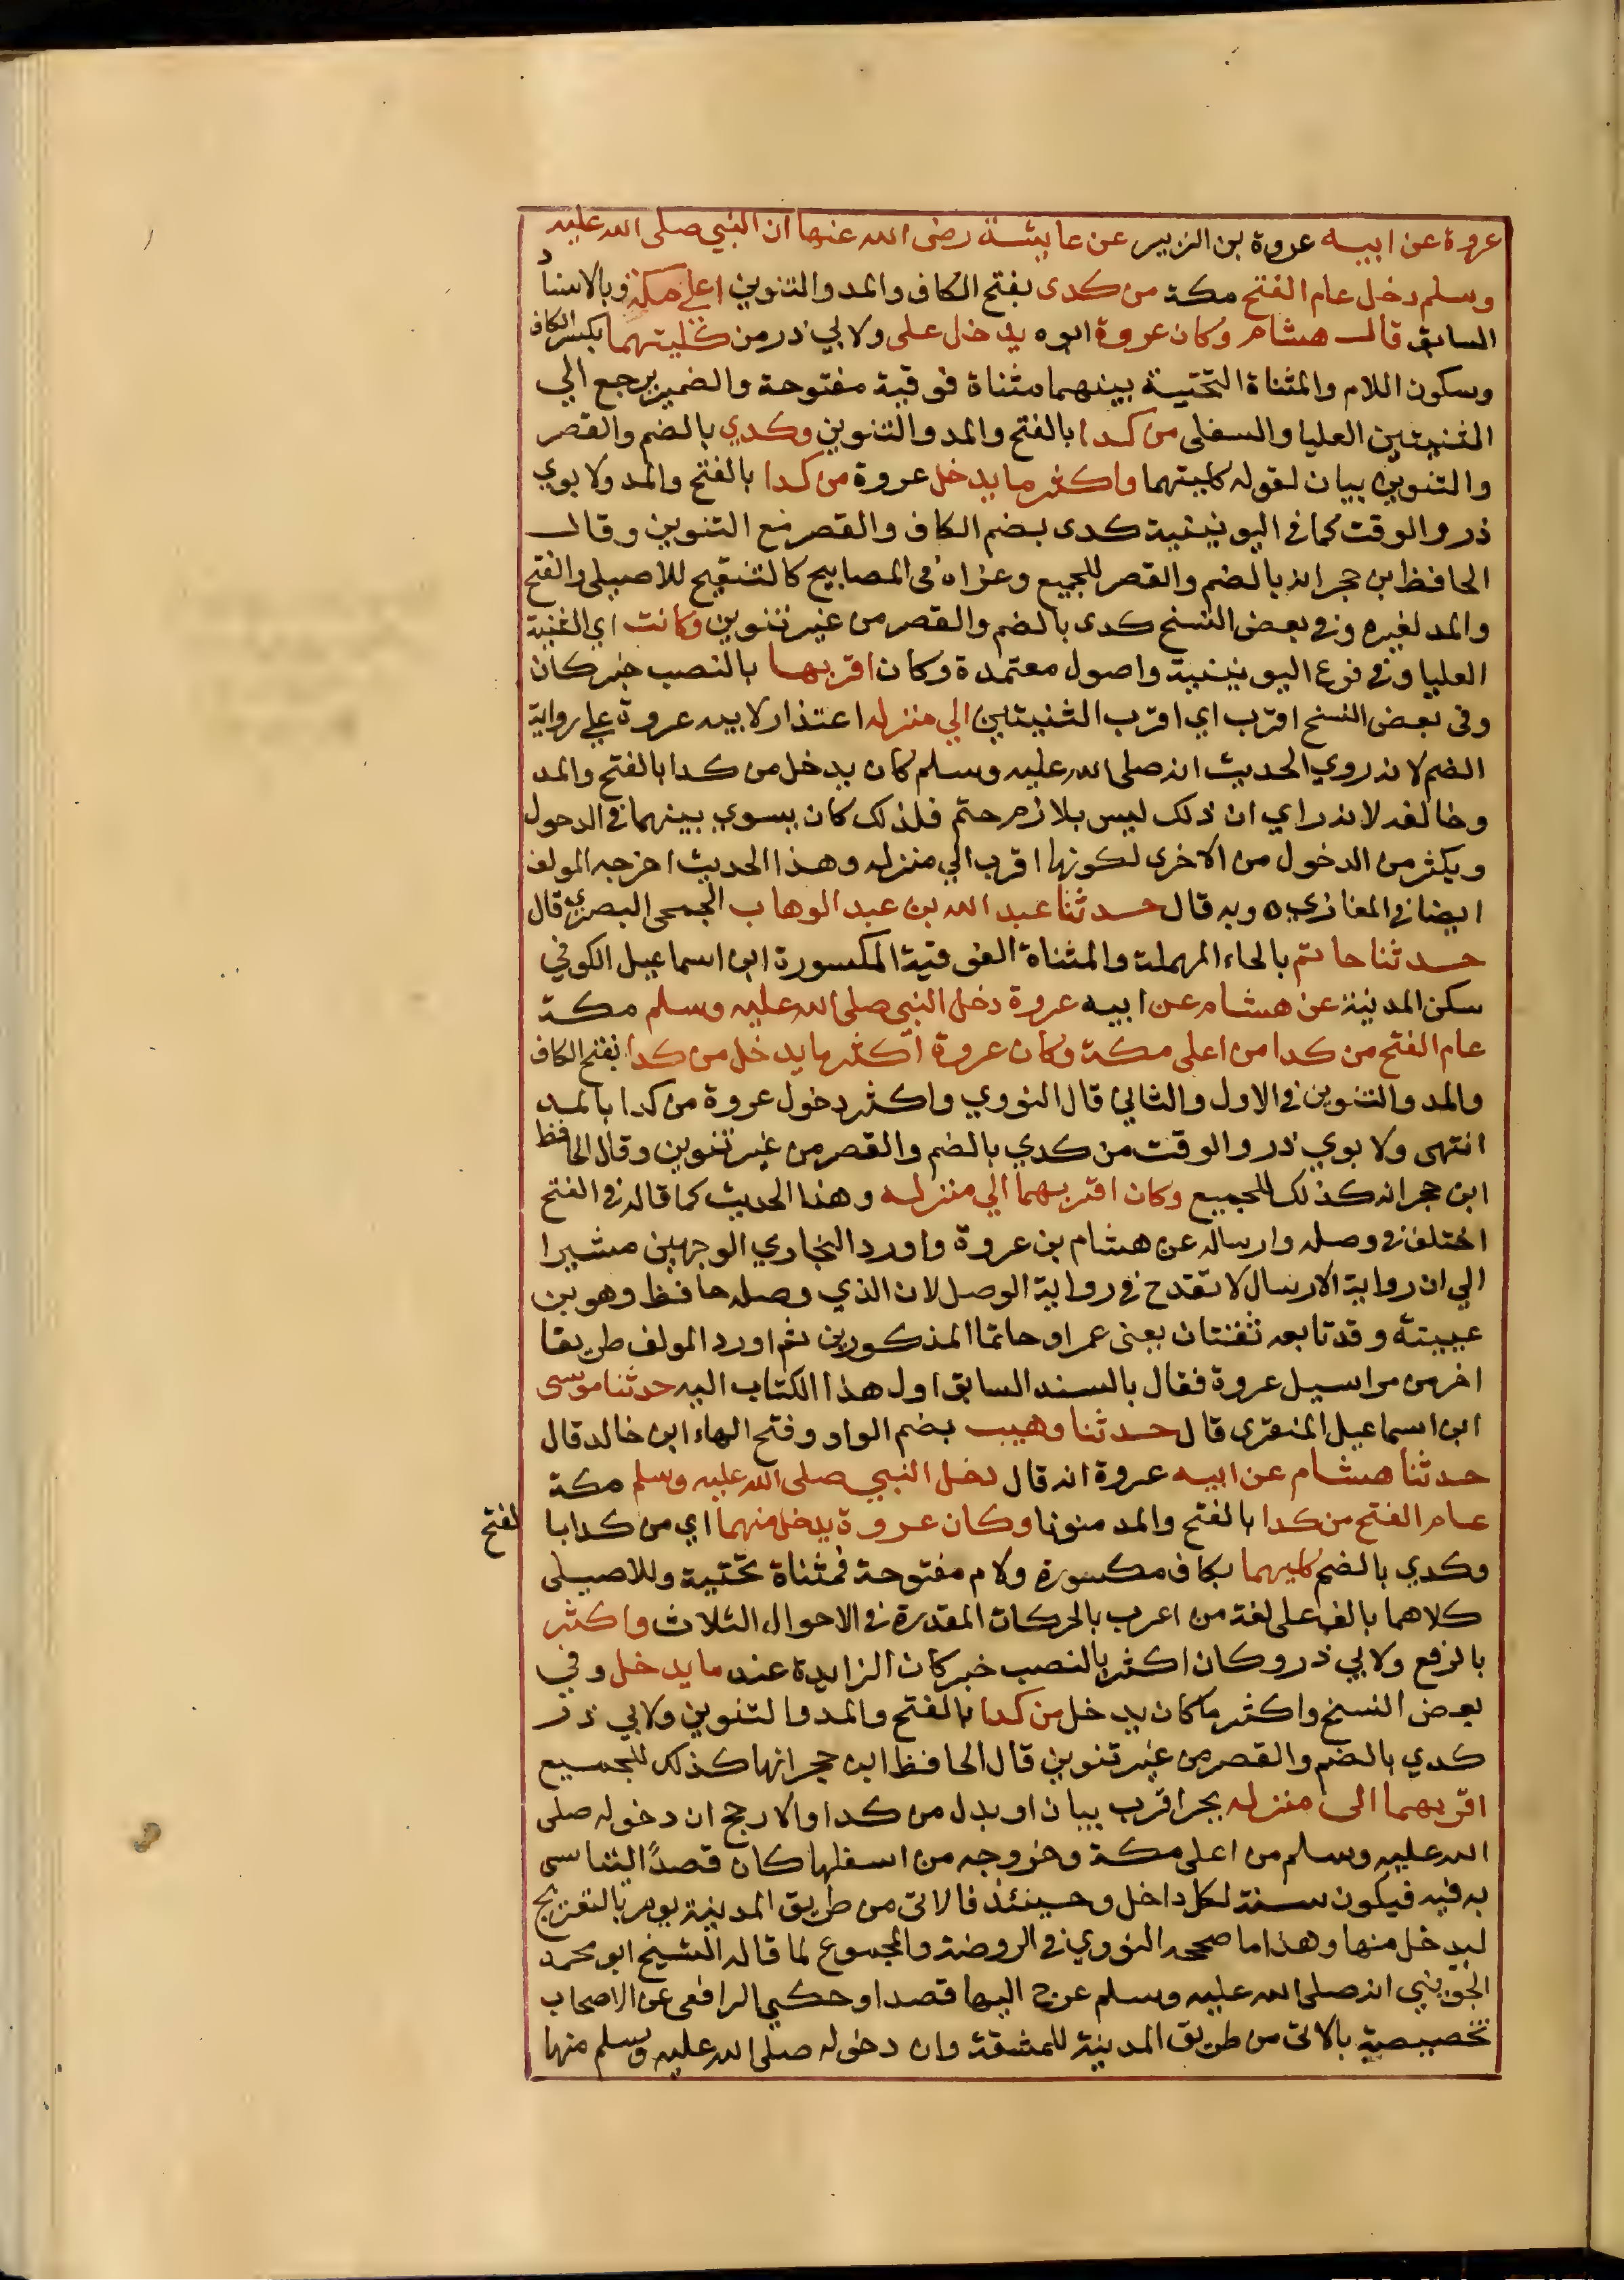 عروة عن ابيه عروة بن الزبير عن عايشة رضى الله عنها ان النبي صلى الله عليه
وسلم دخل عام الفتح مكة من كدى بفتح الكاف والمد والتنوين اعلى مكة وبالاسناد
السابق قال هشام وكان عروة ابوه يدخل على ولابي ذر من كليتهما بكسر الكاف
وسكون اللام والمثناة التحتية بينهما مثناة فوقية مفتوحة والضمير يرجع الي
الثنيتين العليا والسفلى من كدا بالفتح والمد والتنوين وكدي بالضم والقصر
والتنوين بيان لقوله كليتهما واكثر ما يدخل عروة من كدا بالفتح والمد ولابوي
ذر والوقت كما في اليونينية كدى بضم الكاف والقصر مع التنوين وقال
الحافظ ابن حجر انه بالضم والقصر للجميع وعزاه في المصابيح كالتنقيح للاصيلى والفتح
والمد لغيره وفي بعض النسخ كدى بالضم والقصر من غير تنوين وكانت اي الثنية
العليا وفي فرع اليونينية واصول معتمدة وكان اقربها بالنصب خبر كان
وفى بعض النسخ اقرب اي اقرب الثنيتين الي منزله اعتذار لابيه عروة علي رواية
الضم لانه روي الحديث انه صلى الله عليه وسلم كان يدخل من كدا بالفتح والمد
وخالفه لانه راي ان ذلك ليس بلازم حتم فلذلك كان يسوي بينهما في الدخول
ويكثر من الدخول من الاخرى لكونها اقرب الي منزله وهذا الحديث اخرجه المولف
ايضا في المغازي ٥ وبه قال حدثنا عبد الله بن عبد الوهاب الجمحى البصري قال
حدثنا حاتم بالحاء المهملة والمثناة الفوقية المكسورة ابن اسماعيل الكوفي
سكن المدينة عن هشام عن ابيه عروة دخل النبي صلى الله عليه وسلم مكة
عام الفتح من كدا من اعلى مكة وكان عروة اكثر ما يدخل من كدا بفتح الكاف
والمد والتنوين في الاول والثاني قال النووي واكثر دخول عروة من كدا بالمد
انتهى ولابوي ذر والوقت من كدي بالضم والقصر من غير تنوين وقال الحافظ
ابن حجر انه كذلك للجميع وكان اقربهما الي منزله وهذا الحديث كما قاله في الفتح
اختلف في وصله وارساله عن هشام بن عروة واورد البخاري الوجهين مشيرا
الي ان رواية الارسال لا تقدح في رواية الوصل لان الذي وصله حافظ وهو بن
عيينة وقد تابعه ثقتان يعنى عمرا وحاتما المذكورين ثم اورد المولف طريقا
اخر من مراسيل عروة فقال بالسند السابق اول هذا الكتاب اليه حدثنا موسى
ابن اسماعيل المنقرى قال حدثنا وهيب بضم الواو وفتح الهاء ابن خالد قال
حدثنا هشام عن ابيه عروة انه قال دخل النبي صلى الله عليه وسلم مكة
عام الفتح من كدا بالفتح والمد منونا وكان عروة يدخل منهما اي من كدا با لفتح
وكدي بالضم كليهما بكاف مكسورة ولام مفتوحة فمثناة تحتية وللاصيلى
كلاهما بالف على لغة من اعرب بالحركات المقدرة في الاحوال الثلاث واكثر
بالرفع ولابي ذر وكان اكثر بالنصب خبر كان الزايدة عند ما يدخل وفي
بعض النسخ واكثر ما كان يدخل من كدا بالفتح والمد والتنوين ولابي ذر
كدي بالضم والقصر من غير تنوين قال الحافظ ابن حجر انها كذلك للجميع
اقربهما الى منزله بجر اقرب بيان او بدل من كدا والارجح ان دخوله صلى
الله عليه وسلم من اعلى مكة وخروجه من اسفلها كان قصدًا ليتاسى
به فيه فيكون سنة لكل داخل وحينئذ فالاتى من طريق المدينة يومر بالتعريج
ليدخل منها وهذا ما صححه النووي في الروضة والمجموع لما قاله الشيخ ابو محمد
الجويني انه صلى الله عليه وسلم عرج اليها قصدا وحكي الرافعى عن الاصحاب
تخصيصه بالاتى من طريق المدينة للمشقة وان دخوله صلى الله عليه وسلم منها